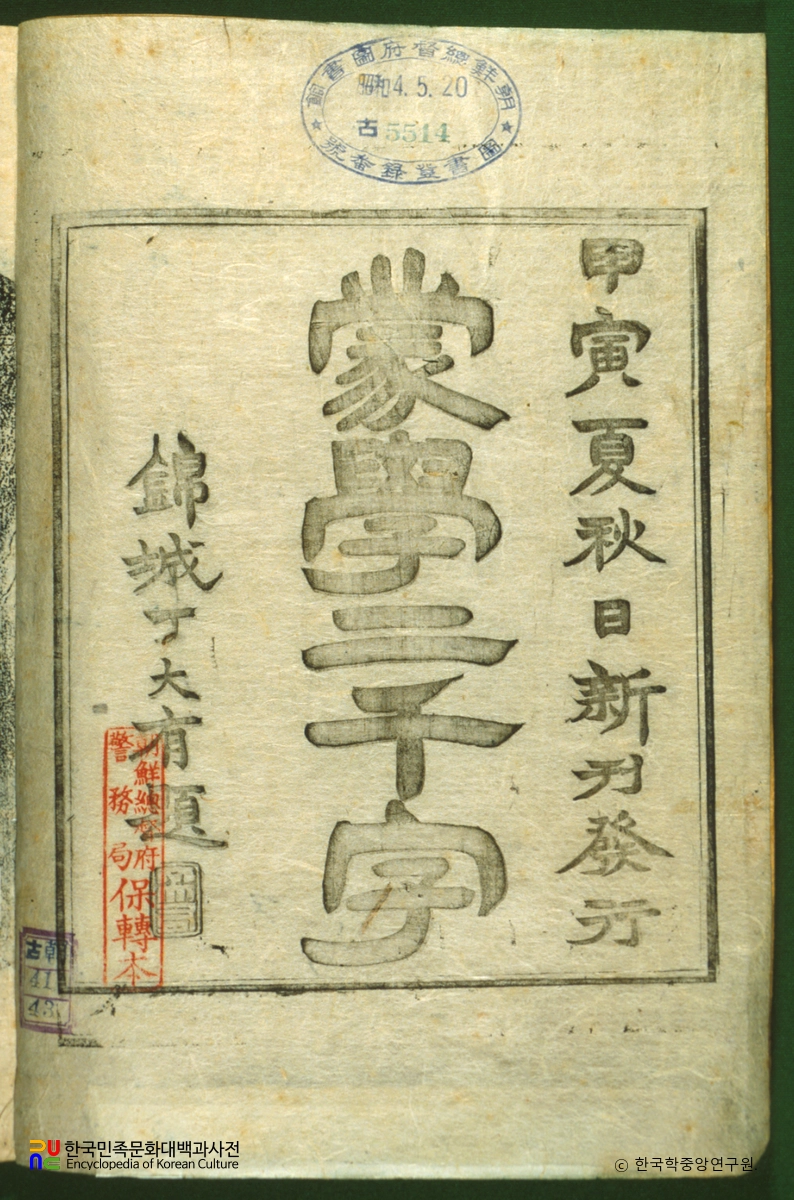 朝鮮總督府圖書館
昭和4.5.20
古5514
圖書登錄番號
甲寅夏秋日新刊發行
蒙學二千字
錦城丁大有題
朝鮮總督府
警務局
保轉本
朝古
41
43
한국민족문화대백과사전
Encyclopedia of Korean Culture
© 한국학중앙연구원